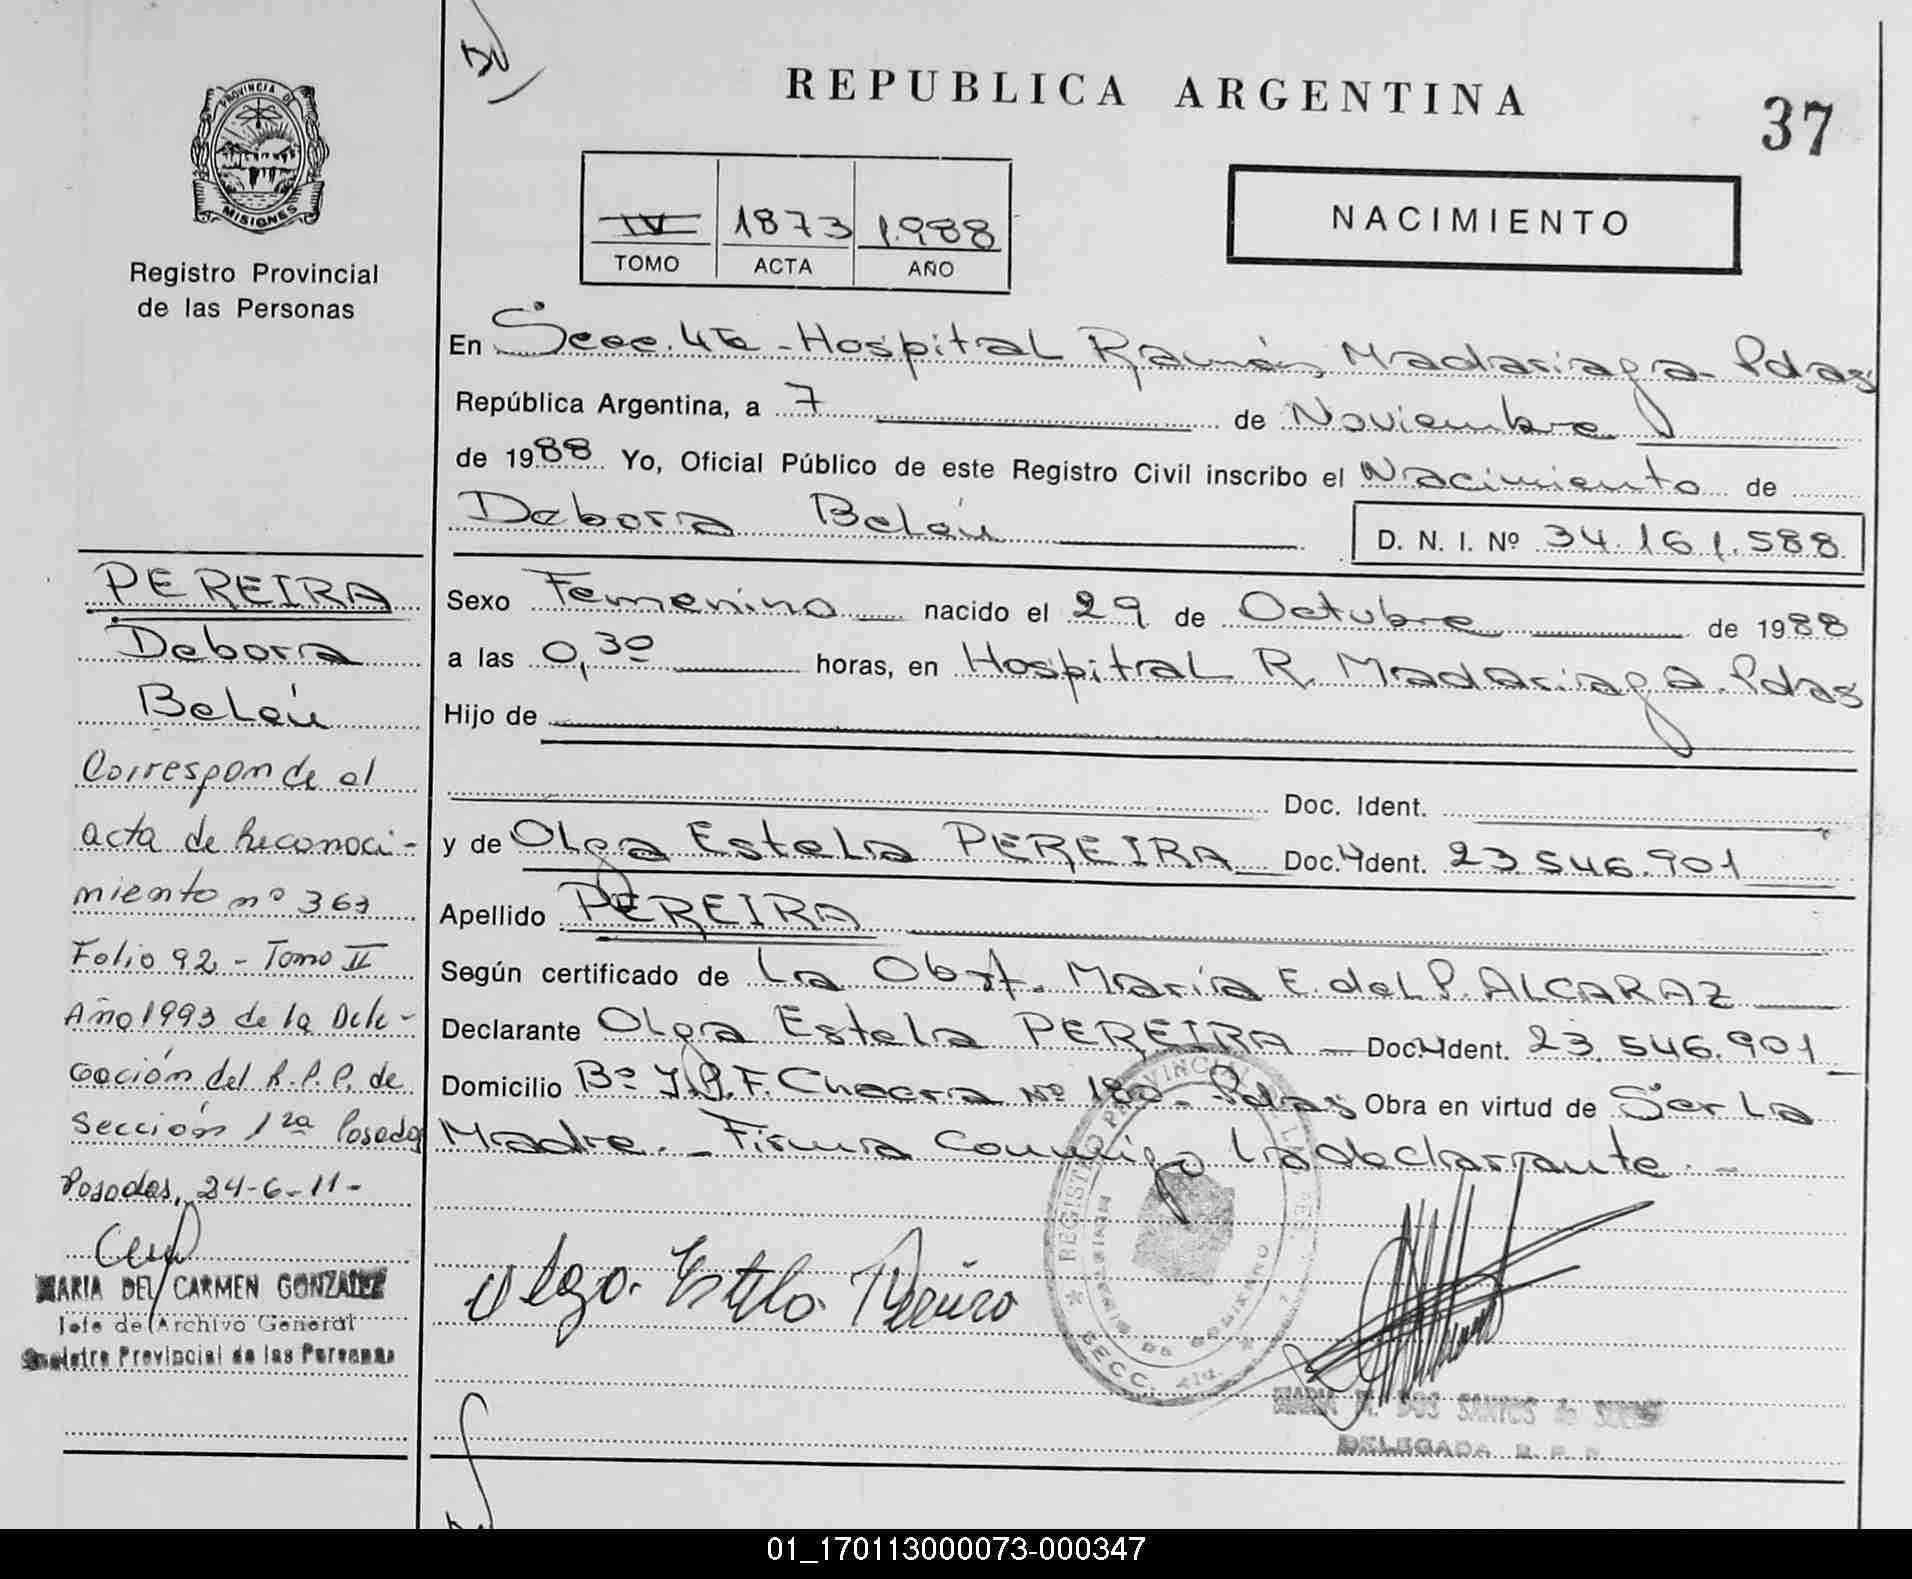 REPUBLICA ARGENTINA
37
PROVINCIA DE
MISIONES
Registro Provincial
de las Personas
IV 1873 1.988
TOMO ACTA AÑO
NACIMIENTO
En Secc. 4ta - Hospital Ramón Madariaga - Pdas
República Argentina, a 7 de Noviembre
de 1988 Yo, Oficial Público de este Registro Civil inscribo el Nacimiento de
Debora Belén
D. N. I. Nº 34.161.588
Sexo Femenino nacido el 29 de Octubre de 1988
a las 0,30 horas, en Hospital R. Madariaga. Pdas
Hijo de
Doc. Ident.
y de Olga Estela PEREIRA Doc. Ident. 23.546.901
Apellido PEREIRA
Según certificado de La Obst. María E. del P. ALCARAZ
Declarante Olga Estela PEREIRA — Doc. Ident. 23.546.901
Domicilio Bº Y.P.F. Chacra Nº 180 - Pdas Obra en virtud de Ser La
Madre. - Firma Conmigo La declarante. -
Olga Estela Pereira
REGISTRO PROVINCIAL DE LAS
SECC. 4ta.
MARIA DOS SANTOS de
DELEGADA R. P. P.
PEREIRA
Debora
Belén
Corresponde al
acta de Reconoci-
miento nº 363
Folio 92 - Tomo II
Año 1993 de la Dele-
gación del R.P.P. de
Sección 1ra Posadas
Posadas, 24-6-11-
MARIA DEL CARMEN GONZALEZ
Jefe de Archivo General
Registro Provincial de las Personas
01_170113000073-000347